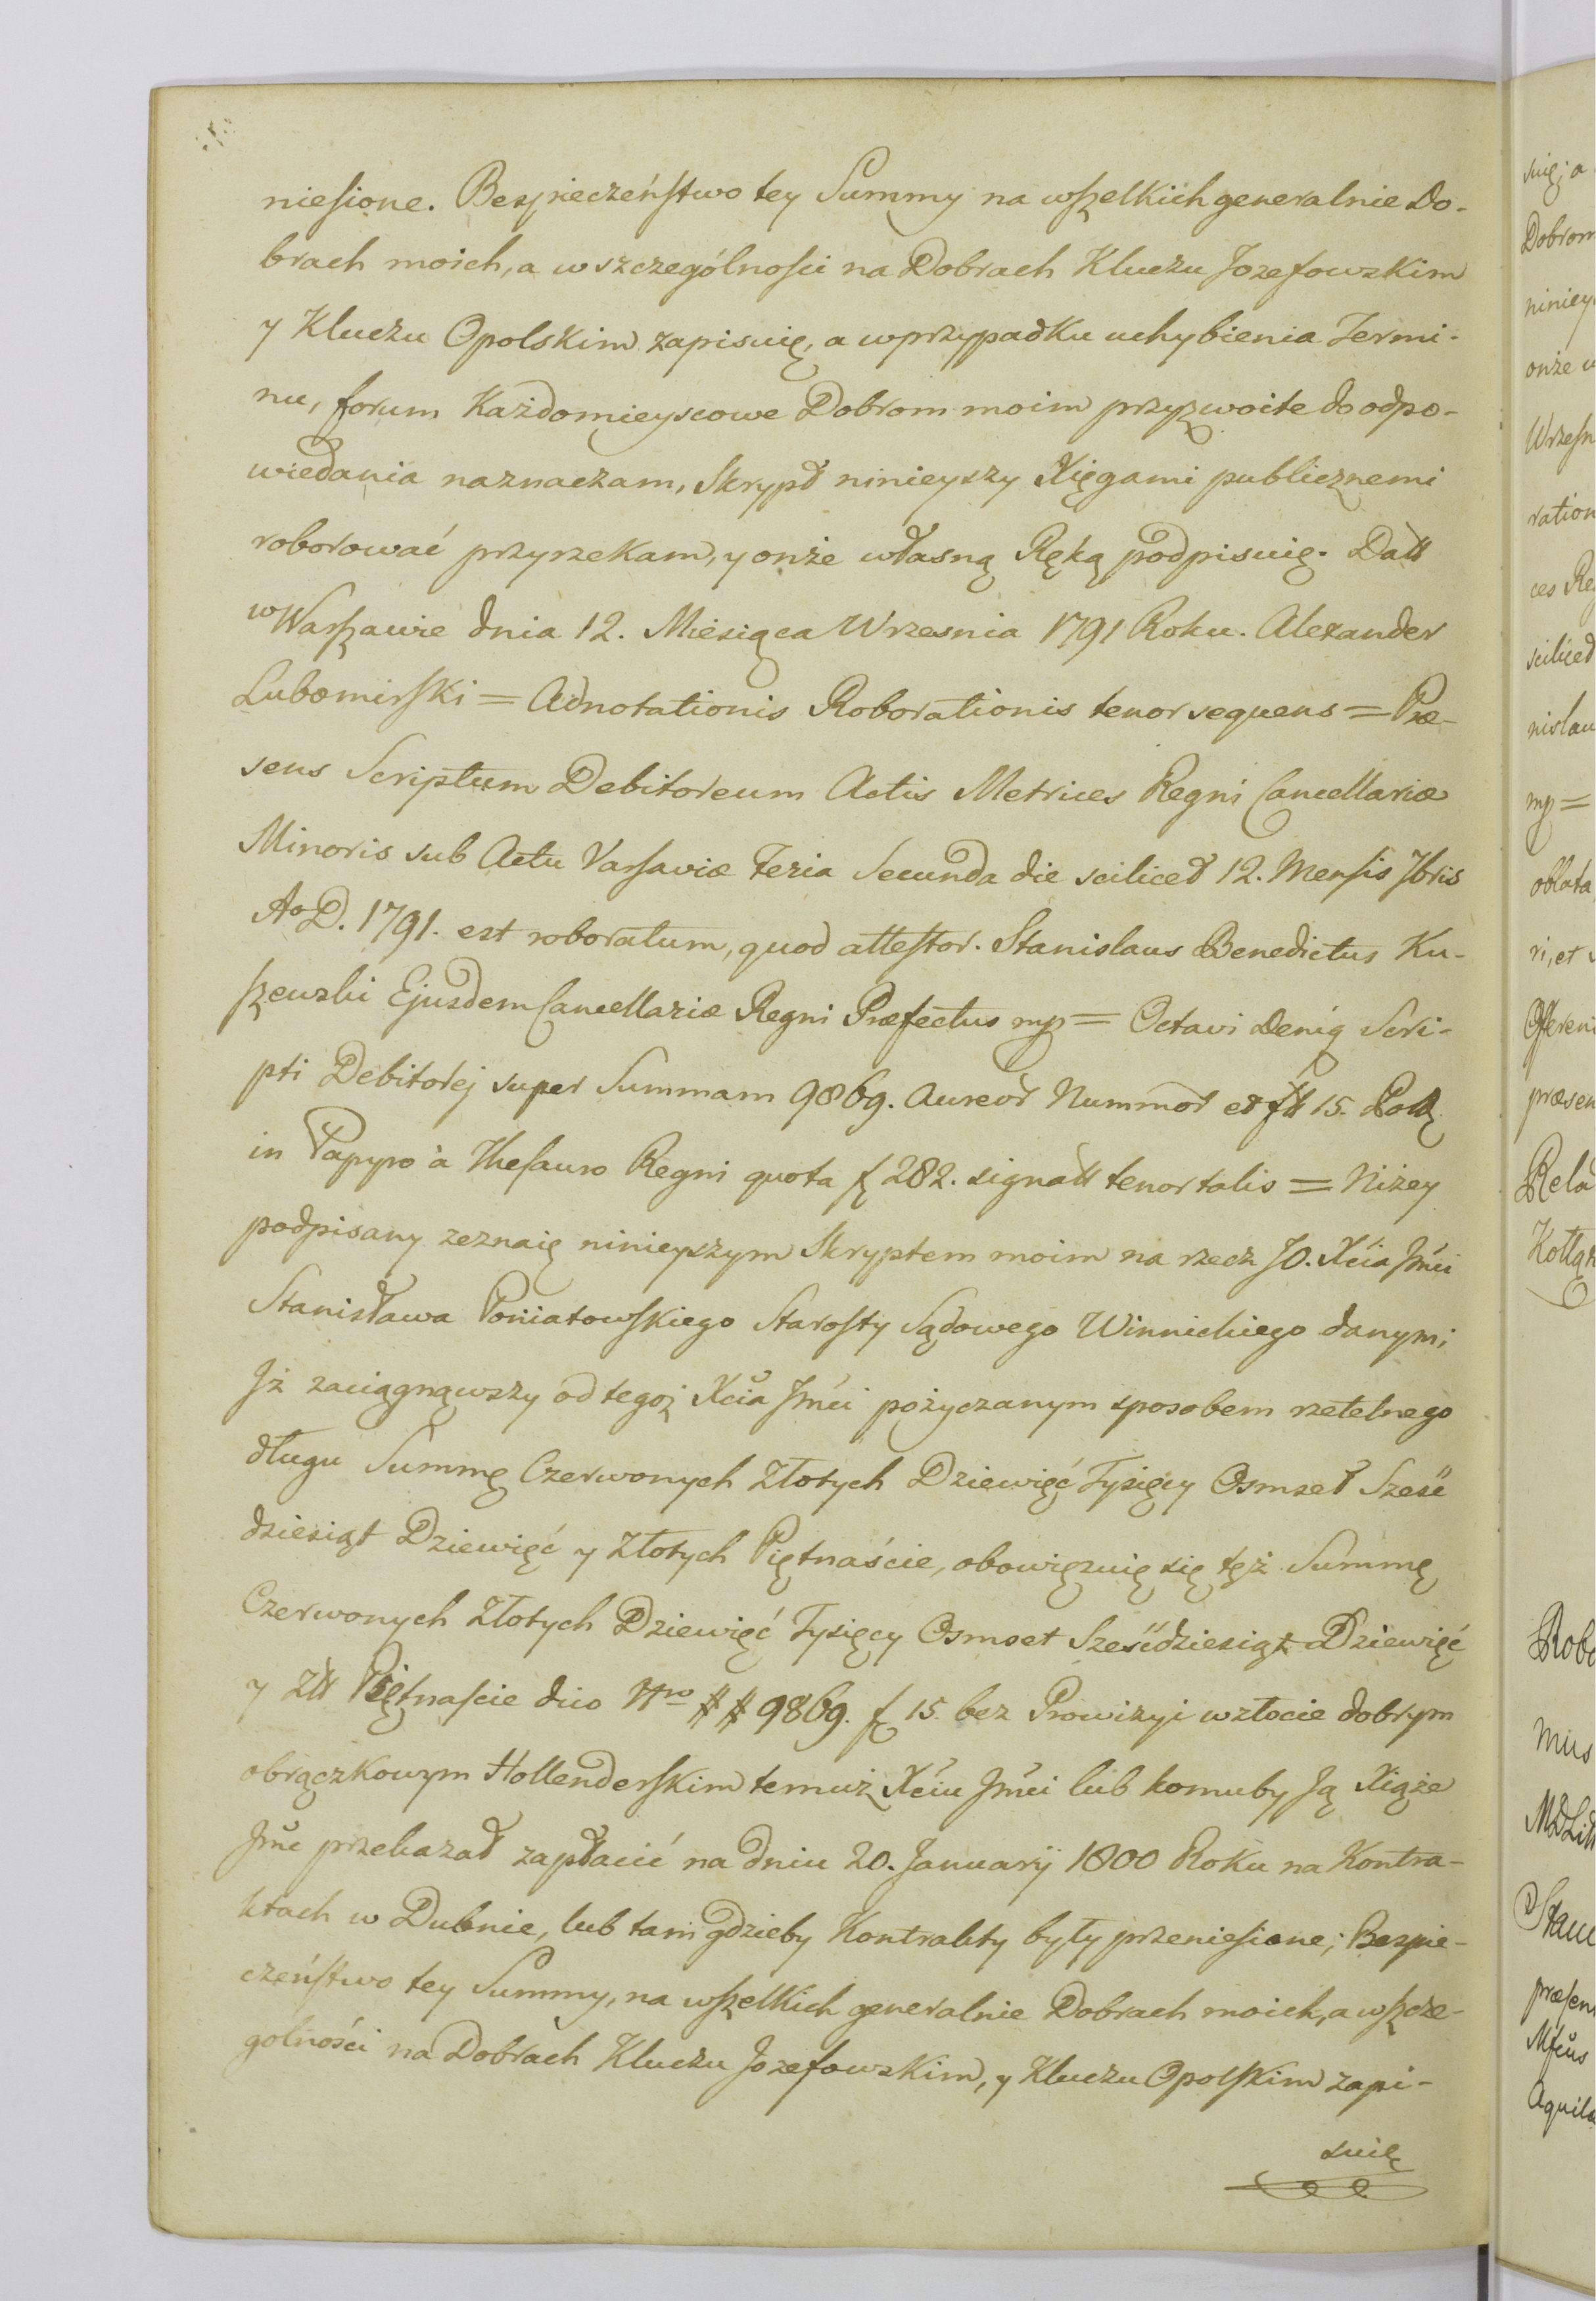 niesione. Bespieczeństwo tey Summy na wszelkich generalnie Do-
brach moich, a wszczególności na Dobrach Kluczu Jozefowskim
y Kluczu Opolskim zapisuię, a wprzypadku uchybienia Termi-
nu, forum Każdomieyscowe Dobrom moim przyzwoite do odpo-
wiedania naznaczam, Skrypt ninieyszy Xięgami publicznemi
roborować przyrzekam, y onże własną Ręką podpisuię. Datt
w Warszawie dnia 12. Miesiąca Wrzesnia 1791 Roku. Alexander
Lubomirski = Adnotationis Roborationis tenor sequens = Præ-
sens Scriptum Debitoreum Actis Metrices Regni Cancellariæ
Minoris sub Actu Varsaviæ Feria Secunda die scilicet 12. Mensis 7bris
Ao D. 1791. est roboratum, quod attestor. Stanislaus Benedictus Ku-
szewski Ejusdem Cancellariæ Regni Præfectus mp = Octavi Deniq Scri-
pti Debitorej super Summam 9869. Aureor Nummor et ftt 15. Poll
in Papyro à Thesauro Regni quota f 282. signatt tenor talis = Niżey
podpisany zeznaię ninieyszym Skryptem moim na rzecz JO. Xcia Jmci
Stanisława Poniatowskiego Starosty Sądowego Winnickiego danym;
Iż zaciągnąwszy od tegoż Xcia Jmci pożyczanym sposobem rzetelnego
długu Summę Czerwonych Złotych Dziewięć Tysięcy Osmset Sześć
dziesiąt Dziewięć y Złotych Piętnaście, obowięzuię się tęż Summę
Czerwonych Złotych Dziewięć Tysięcy Osmset Sześćdziesiąt Dziewięć
y Złtt Piętnaście dico Nro ## 9869. f 15. bez Prowizyi wzłocie dobrym
obrączkowym Hollenderskim temuż Xciu Jmci lub komuby Ją Xiąże
Jmc przekazał zapłacić na dniu 20. Januarij 1800 Roku na Kontra-
ktach w Dubnie, lub tam gdzieby Kontrakty były przeniesione; Bezpie-
czeństwo tey Summy, na wszelkich generalnie Dobrach moich, a wszcze-
golności na Dobrach Kluczu Jozefowskim, y Kluczu Opolskim zapi-
suię